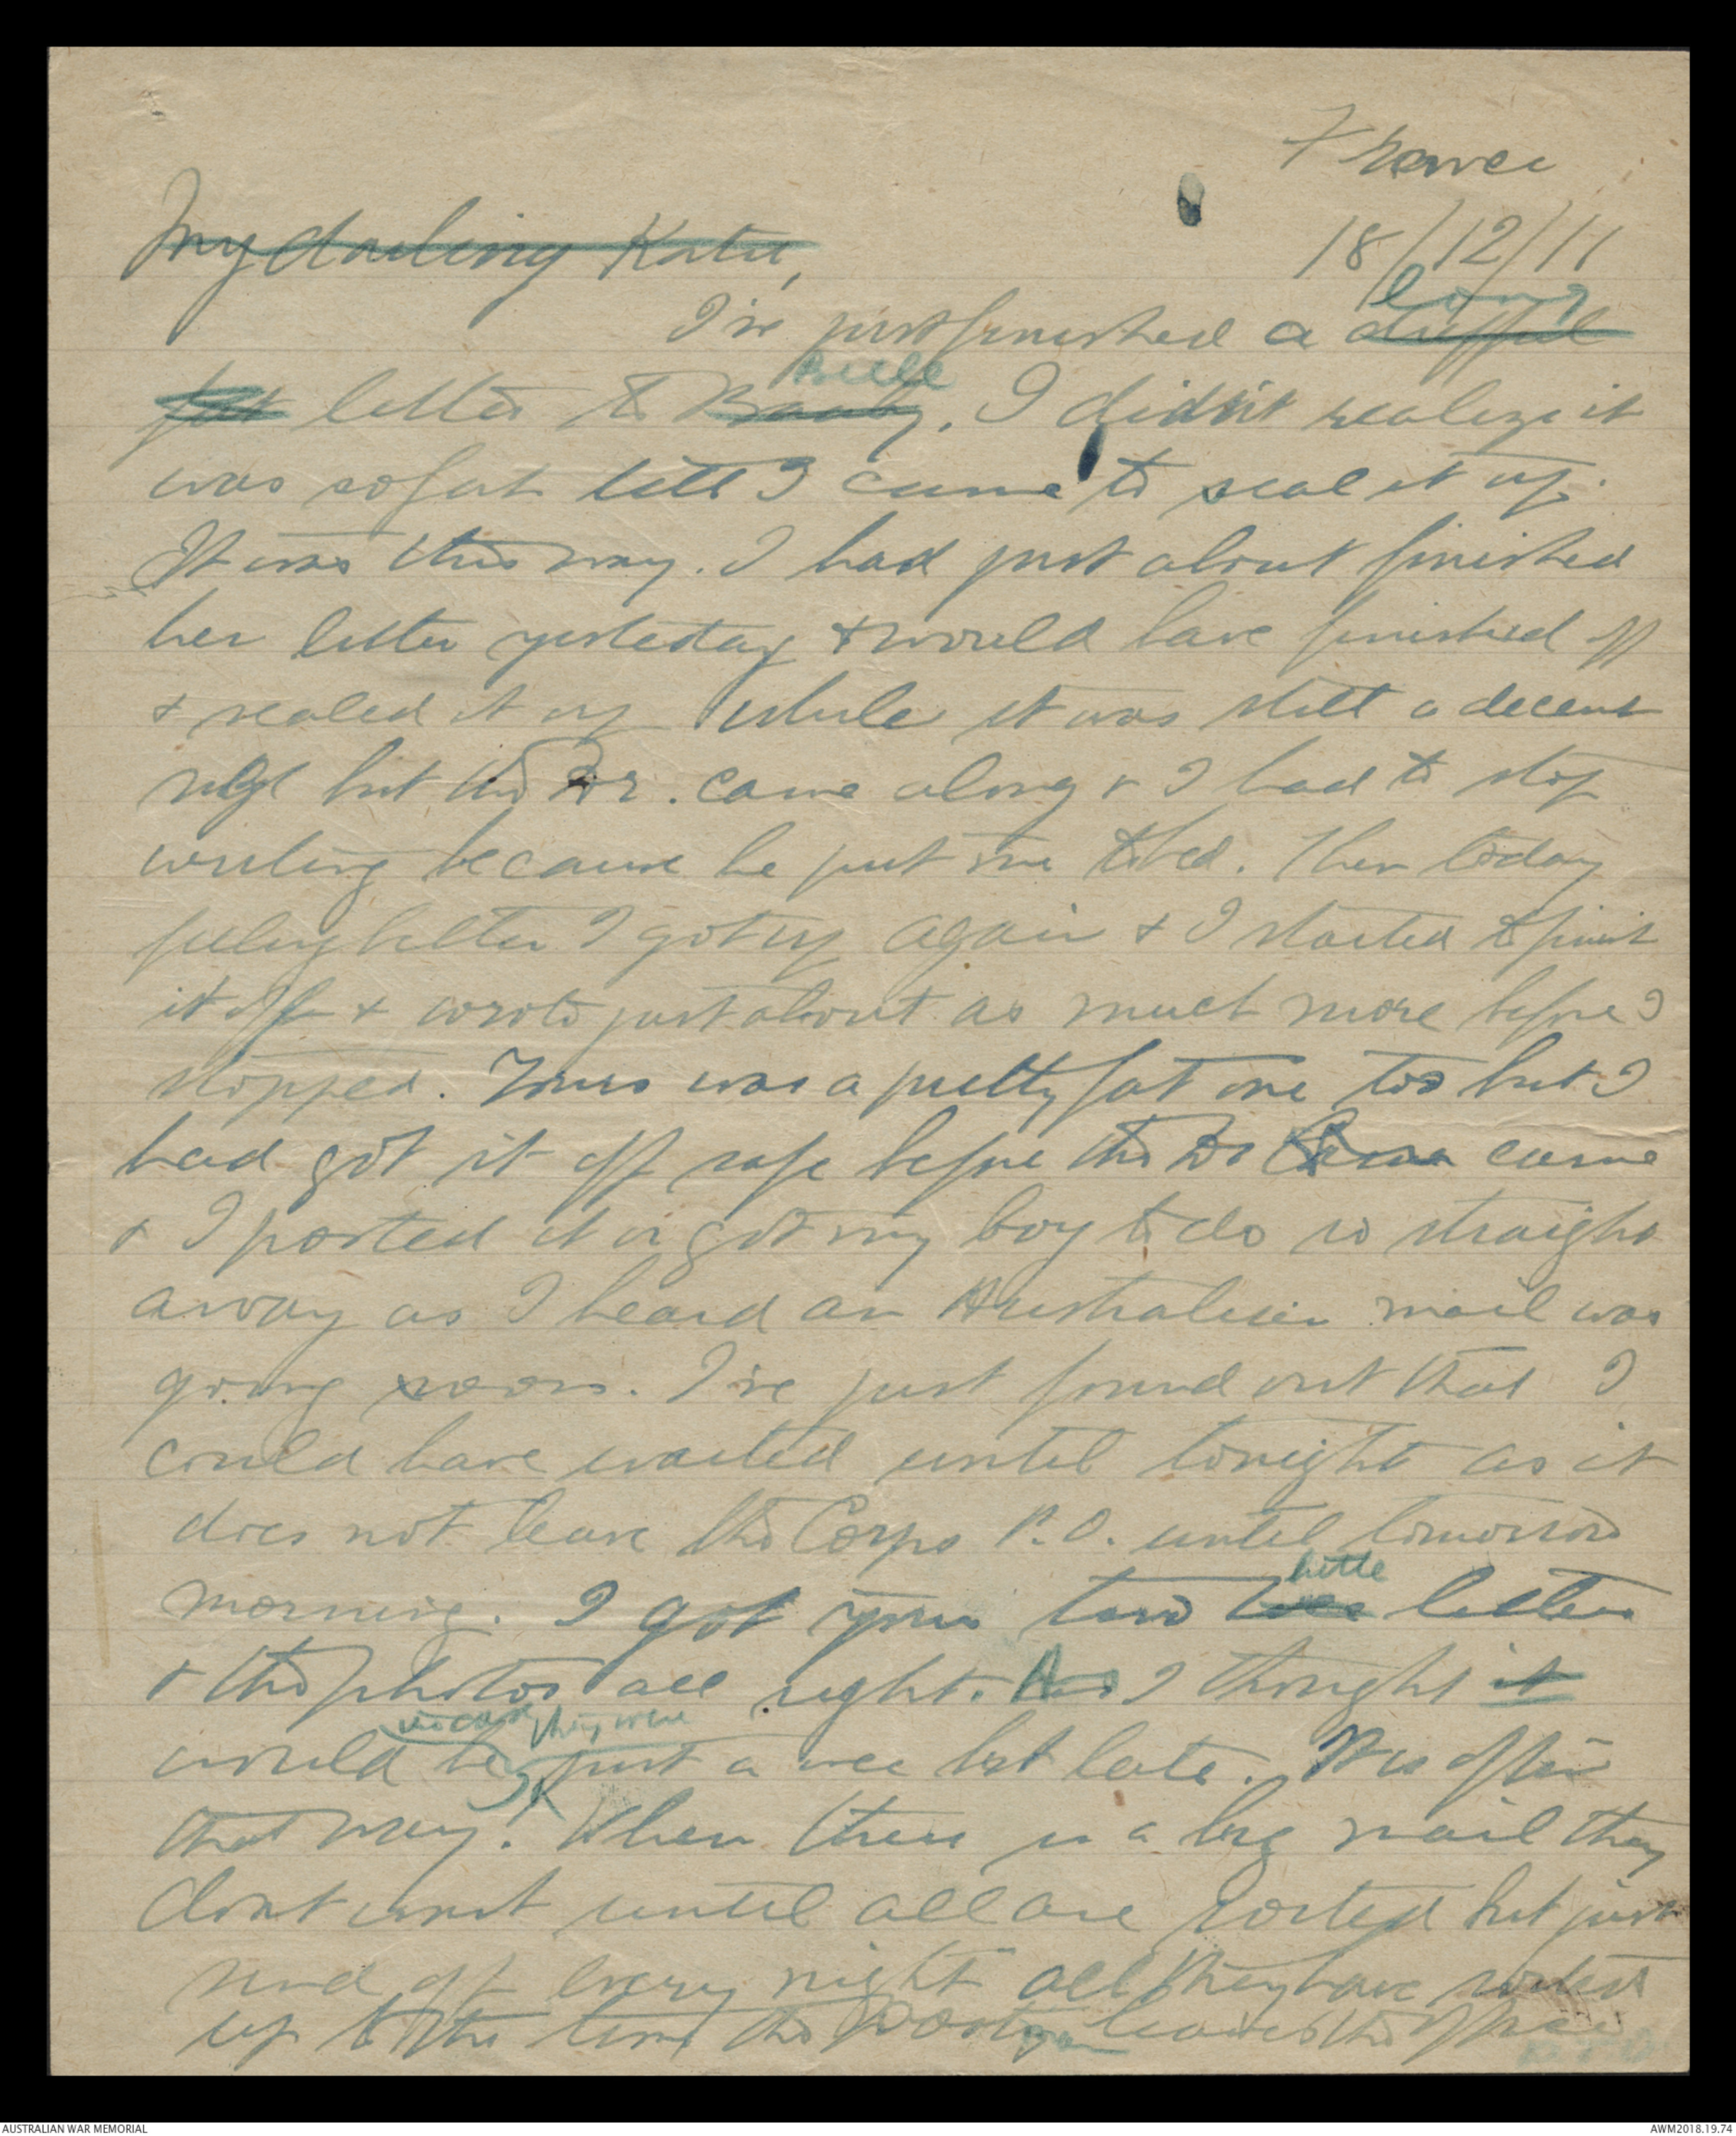 France
18/12/11
My darling Katie,
long
I've just finished a
Belle
fat letter to Baaby. I didn't realize it
was so fat till I came to seal it up.
It was this way. I had just about finished
her letter yesteday & would have finished off
& sealed it up while it was still a decent
but the Dr. came along & I had to stop
writing because he put me to bed. Then today
feeling better I got up again & I started to finish
it off & wrote just about as much more before I
stopped. Yours was a pretty fat one too but I
had got it off safe before the Dr came
& I posted it or got my boy to do so straight
away as I heard an Australian mail was
going soon. I've just found out that I
could have waited until tonight as it
does not leave the Corps P.O. until tomorrow
little
morning. I got your two wee letters
& the photos all right. As I thought it
the case they were
would be just a wee bit late. It is often
that way. When there is a big mail they
dont wait until all are sorted but just
send off every night all they have sorted
up to the time the Postman leaves the office
AUSTRALIAN WAR MEMORIAL
AWM2018.19.74